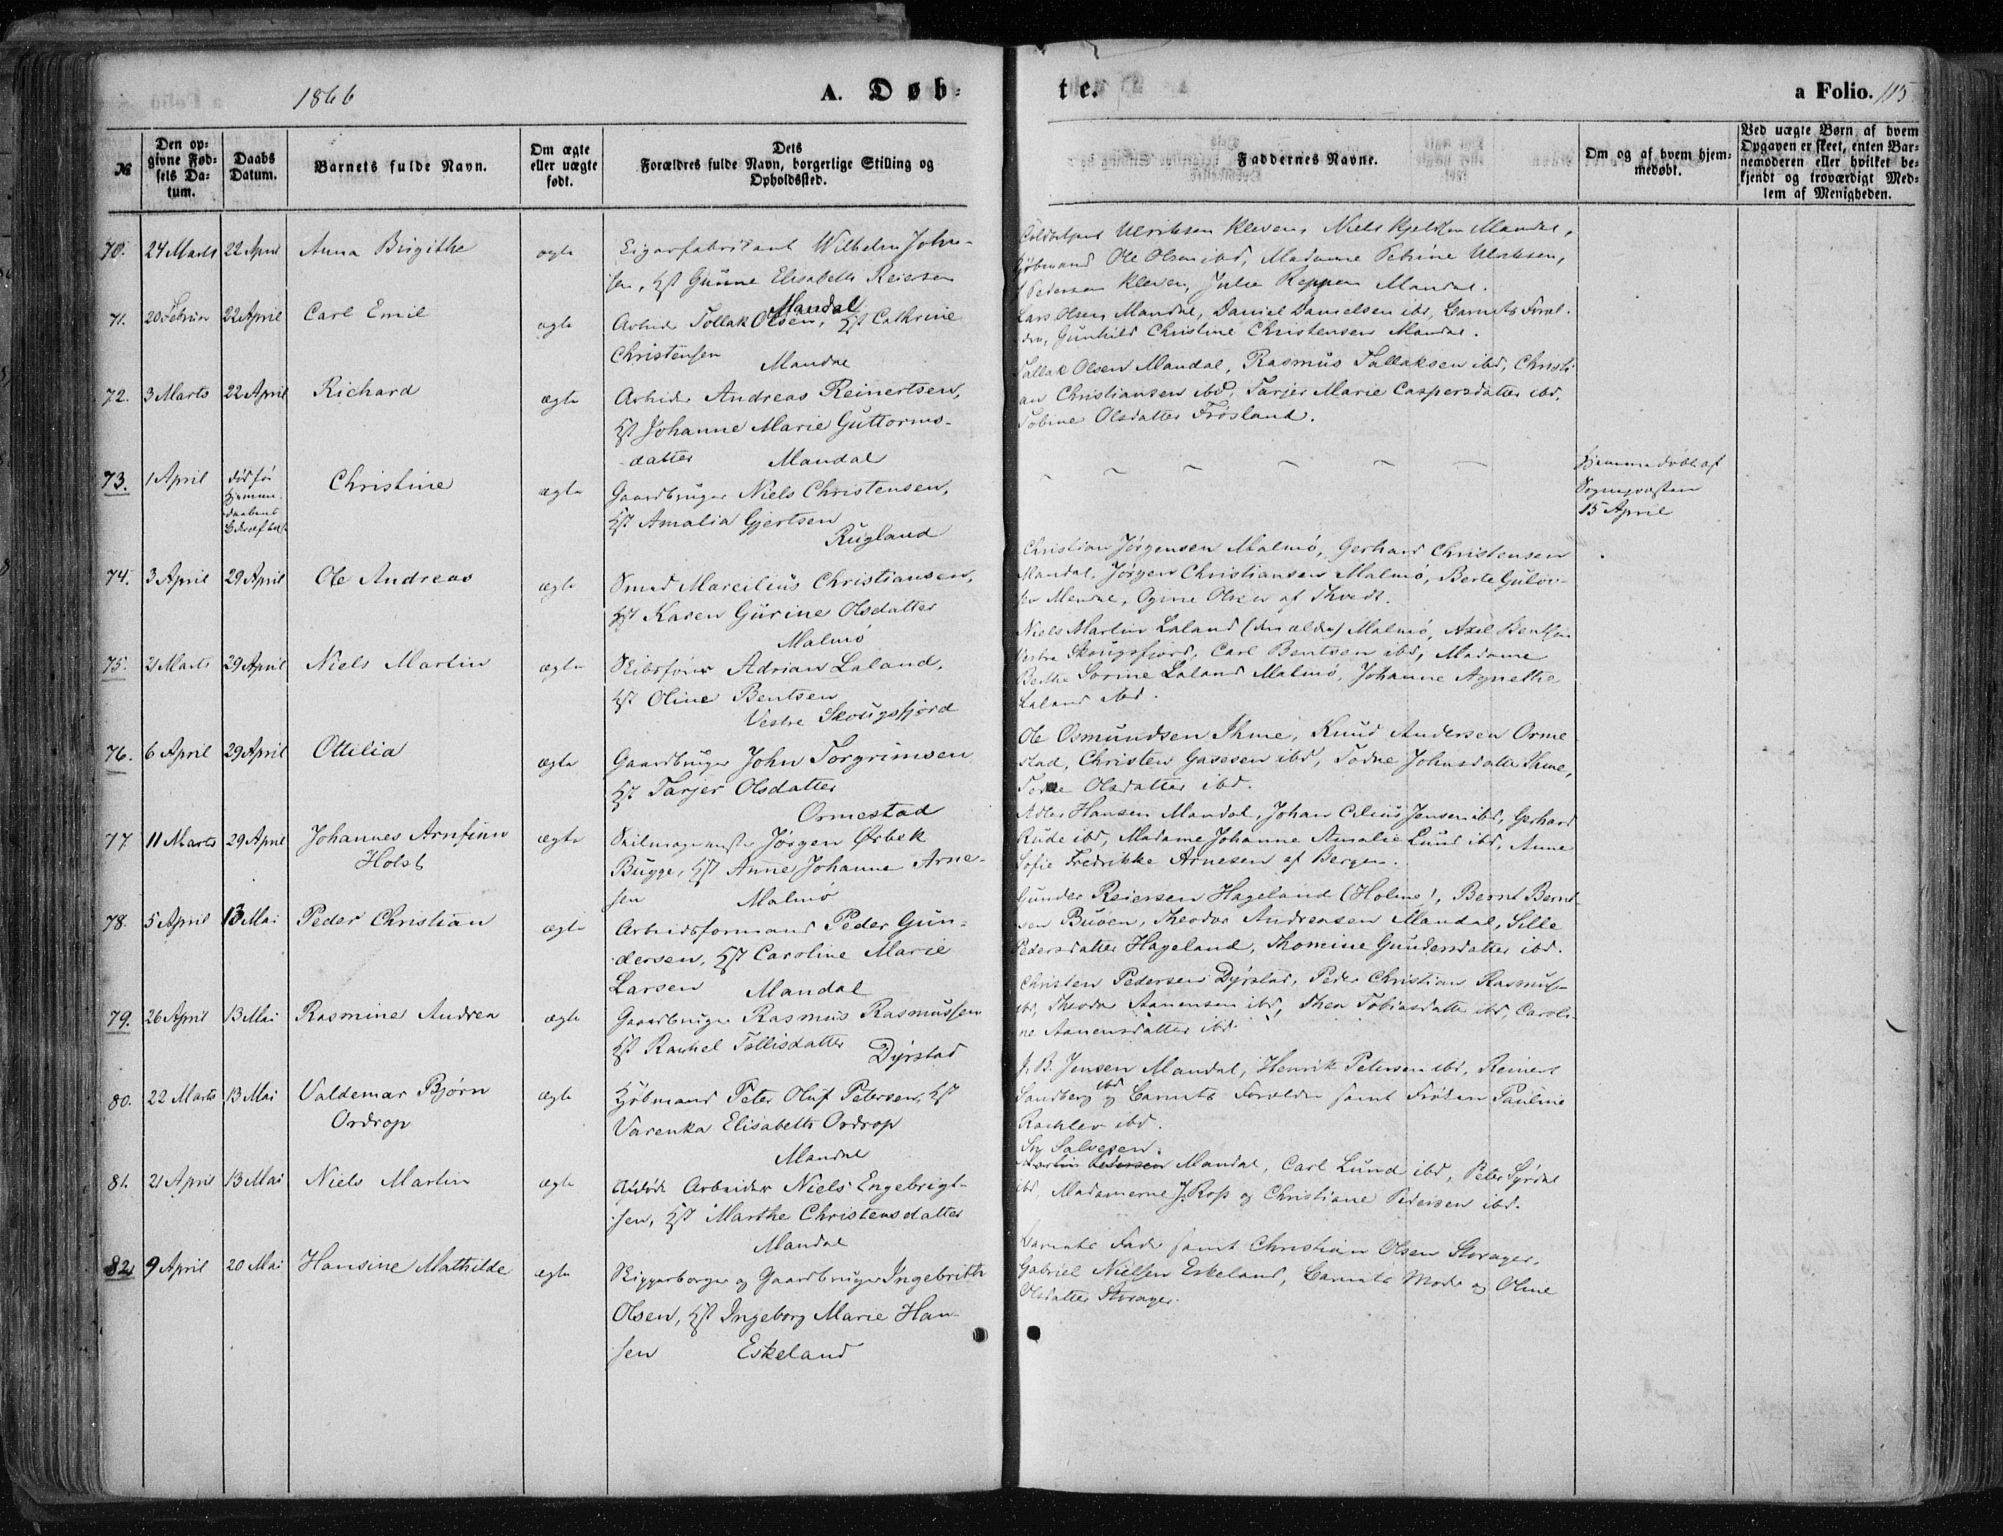 1866
A. Døb-
te.
a Folio. 115
№
Den op-
givne Fød-
sels Da-
tum.
Daabs
Datum.
Barnets fulde Navn.
Om ægte
eller uægte
født.
Dets
Forældres fulde Navn, borgerlige Stilling og
Opholdssted.
Faddernes Navne.
Om og af hvem hjem-
medøbt.
Ved uægte Børn af hvem
Opgaven er skeet, enten Bar-
nemoderen eller hvilket be-
kjendt og troværdigt Med-
lem af Menigheden.
70. 24 Marts 22 April Anna Birgithe ægte Cigarfabrikant Wilhelm John-
sen, Hst Gunne Elisabeth Reiersen
Mandal
Ulriksen Kleven, Niels Kjeldsen Mandal,
Kjøbmand Ole Olsen ibd, Madame Petrine Ulriksen,
Pedersen Kleven, Julie Reppen Mandal.
71. 20 Februar 22 April Carl Emil ægte Arbeider Tollak Olsen, Hst Cathrine
Christensen
Mandal
Lars Olsen Mandal, Daniel Danielsen ibd, Barnets Foræl-
dre, Gunhild Christine Christensen Mandal.
72. 3 Marts 22 April Richard ægte Arbeider Andreas Reinertsen,
Hst Johanne Marie Guttorms-
datter Mandal
Tallak Olsen Mandal, Rasmus Tallaksen ibd, Christi-
an Christiansen ibd, Tarjer Marie Caspersdatter ibd,
Tobine Olsdatter Frøsland.
73. 1 April død før
Hjemme-
daabens
Bekræftelse
Christine ægte Gaardbruger Niels Christensen,
Hst Amalia Gjertsen
Rugland
Hjemmedøbt af
Sognepræsten
15 April
74. 3 April 29 April Ole Andreas ægte Smed Marcilius Christiansen,
Hst Karen Gurine Olsdatter
Malmø
Christian Jørgensen Malmø, Gerhard Christensen
Mandal, Jørgen Christiansen Malmø, Berte Gulov-
sen Mandal, Ogine Olsen af Kvedt.
75. 21 Marts 29 April Niels Martin ægte Skibsfører Adrian Laland,
Hst Oline Bentsen
Vestre Skougsfjord
Niels Martin Laland (den ældre) Malmø, Axel Bentsen
Vestre Skougsfjord, Carl Bentsen ibd, Madame
Berthe Sorine Laland Malmø, Johanne Agnethe
Laland ibd.
76. 6 April 29 April Ottilia ægte Gaardbruger John Torgrimsen
Hst Tarjer Olsdatter
Ormestad
Ole Osmundsen Ihme, Knud Andersen Orme-
stad, Christen Gasesen ibd, Todne Johnsdatter Ihme,
Olsdatter ibd.
77. 11 Marts 29 April Johannes Arnfinn
Holst
ægte Seilmagermester Jørgen Ørbek
Bugge, Hst Anne Johanne Arne-
sen Malmø
Adler Hansen Mandal, Johan Cilius Jensen ibd, Gerhard
Rude ibd, Madame Johanne Amalie Lund ibd, Anne
Sofie Fredrikke Arnesen af Bergen.
78. 5 April 13 Mai Peder Christian ægte Arbeidsformand Peder Gun-
dersen, Hst Caroline Marie
Larsen Mandal
Gunder Reiersen Hageland (Holme), Bernt Bernt-
sen Buøen, Theodor Andreasen Mandal, Sille
Pedersdatter Hageland, Thomine Gundersdatter ibd.
79. 26 April 13 Mai Rasmine Andrea ægte Gaardbruger Rasmus Rasmussen
Hst Rachel Tollisdatter
Dyrstad
Christen Pedersen Dyrstad, Peder Christian Rasmus-
ibd, Theodor Aanensen ibd, Thea Tobiasdatter ibd, Caroli-
ne Aanensdatter ibd.
80. 22 Marts 13 Mai Valdemar Bjørn
Ordrop
ægte Kjøbmand Peter Oluf Petersen, Hst
Varenka Elisabeth Ordrop
Mandal
J. B. Jensen Mandal, Henrik Petersen ibd, Reinert
Sandberg ibd og Barnets Forældre samt Frøken Pauline
Rachlev ibd.
81. 21 April 13 Mai Niels Martin ægte Afdøde Arbeider Niels Engebrigt-
sen, Hst Marthe Christensdatter
Mandal
Salvesen
Mandal, Carl Lund ibd, Peter Syrdal
ibd, Madamerne J. Ross og Christiane Pedersen ibd.
82. 9 April 20 Mai Hansine Mathilde ægte Skiggerborger og Gaardbruger Ingebrith
Olsen, Hst Ingeborg Marie Han-
sen Eskeland
Barnets Fader samt Christian Olsen Storager,
Gabriel Nielsen Eskeland, Barnets Moder og Oline
Olsdatter Storager.